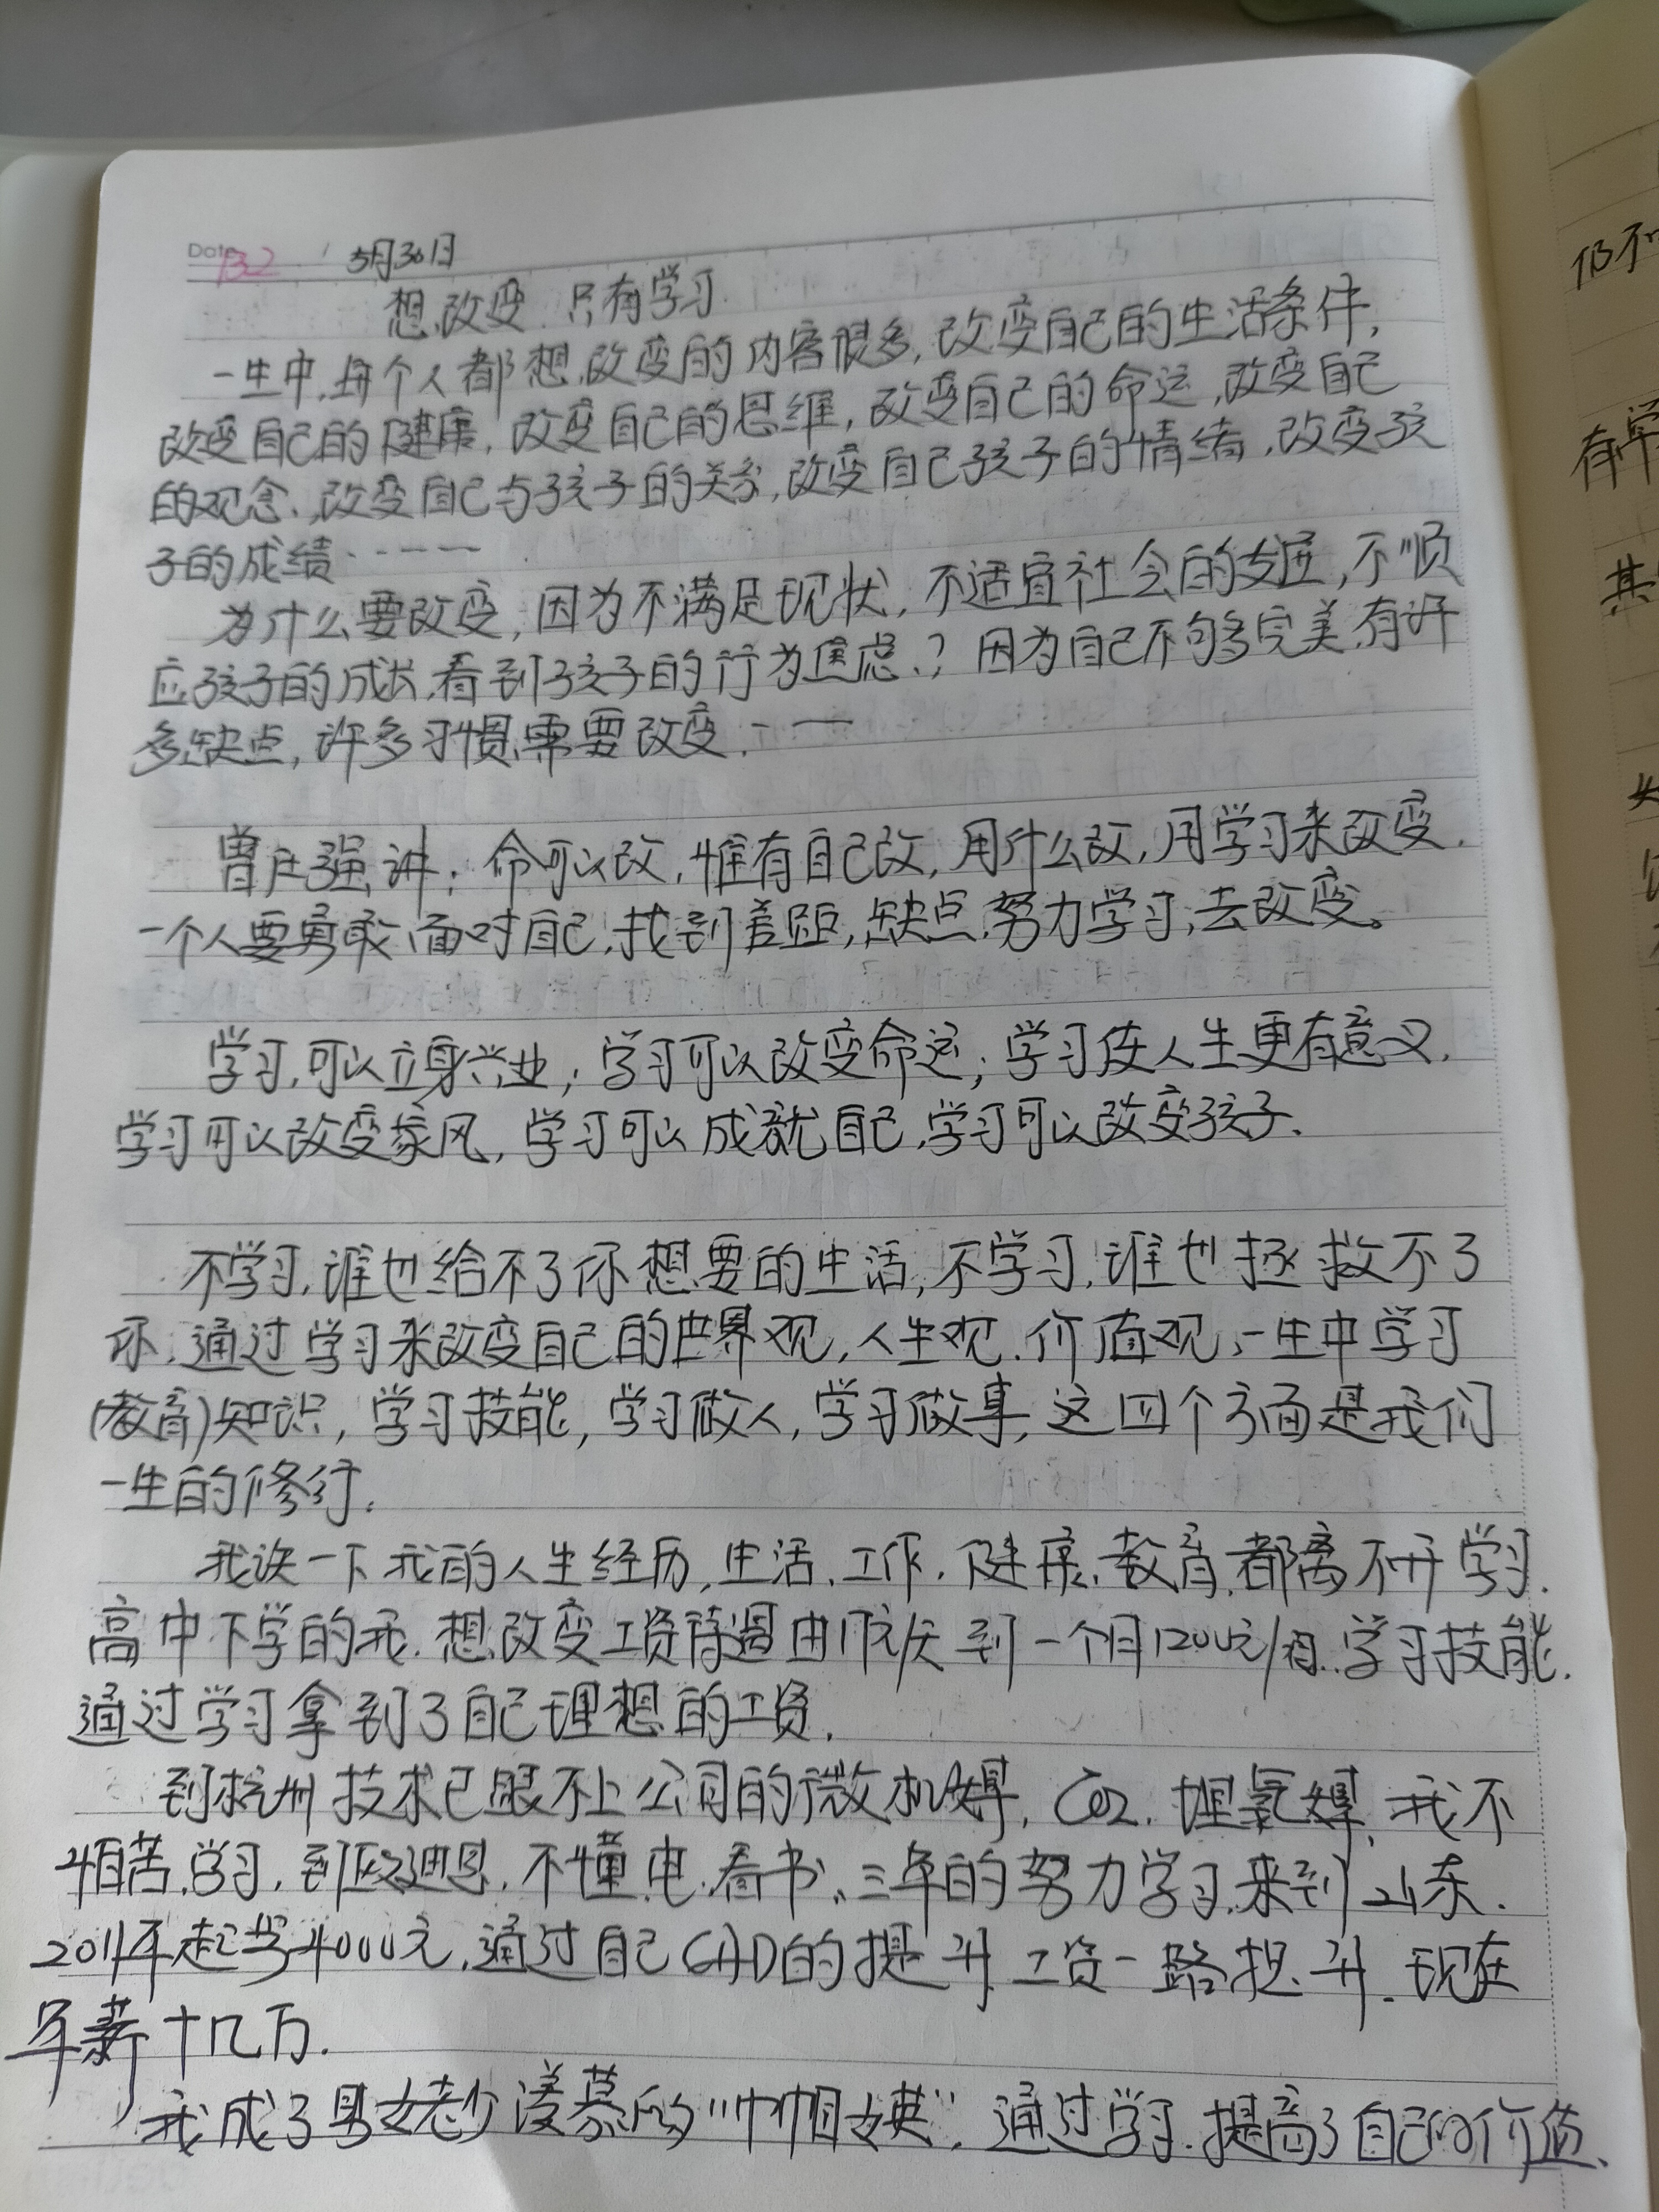 Date 132 5月30日
想改变 只有学习
一生中,每个人都想改变的内容很多,改变自己的生活条件,
改变自己的健康,改变自己的思维,改变自己的命运,改变自己
的观念、改变自己与孩子的关系,改变自己孩子的情绪,改变孩
子的成绩……
为什么要改变,因为不满足现状,不适宜社会的发展,不顺
应孩子的成长,看到孩子的行为焦虑、?因为自己不够完美,有许
多缺点,许多习惯需要改变……
曾仕强讲:命可以改,惟有自己改,用什么改,用学习来改变.
一个人要勇敢面对自己,找到差距,缺点,努力学习,去改变。
学习,可以立身兴业;学习可以改变命运;学习使人生更有意义.
学习可以改变家风,学习可以成就自己,学习可以改变孩子.
不学习,谁也给不了你想要的生活,不学习,谁也拯救不了
你.通过学习来改变自己的世界观,人生观.价值观,一生中学习
(教育)知识,学习技能,学习做人,学习做事,这四个方面是我们
一生的修行.
我谈一下我的人生经历,生活、工作、健康、教育,都离不开学习.
高中下学的我.想改变工资待遇由17元/天到一个月1200元/月.学习技能.
通过学习拿到了自己理想的工资.
到杭州技术已跟不上公司的微机焊,CO2.埋氩焊,我不
怕苦,学习,到欧迪恩.不懂电.看书、三年的努力学习.来到山东.
2011年起步4000元,通过自己CAD的提升工资一路提升.现在
年薪十几万.
我成了男女老少羡慕的"巾帼女英".通过学习.提高了自己的价值、
仍不
有学
其